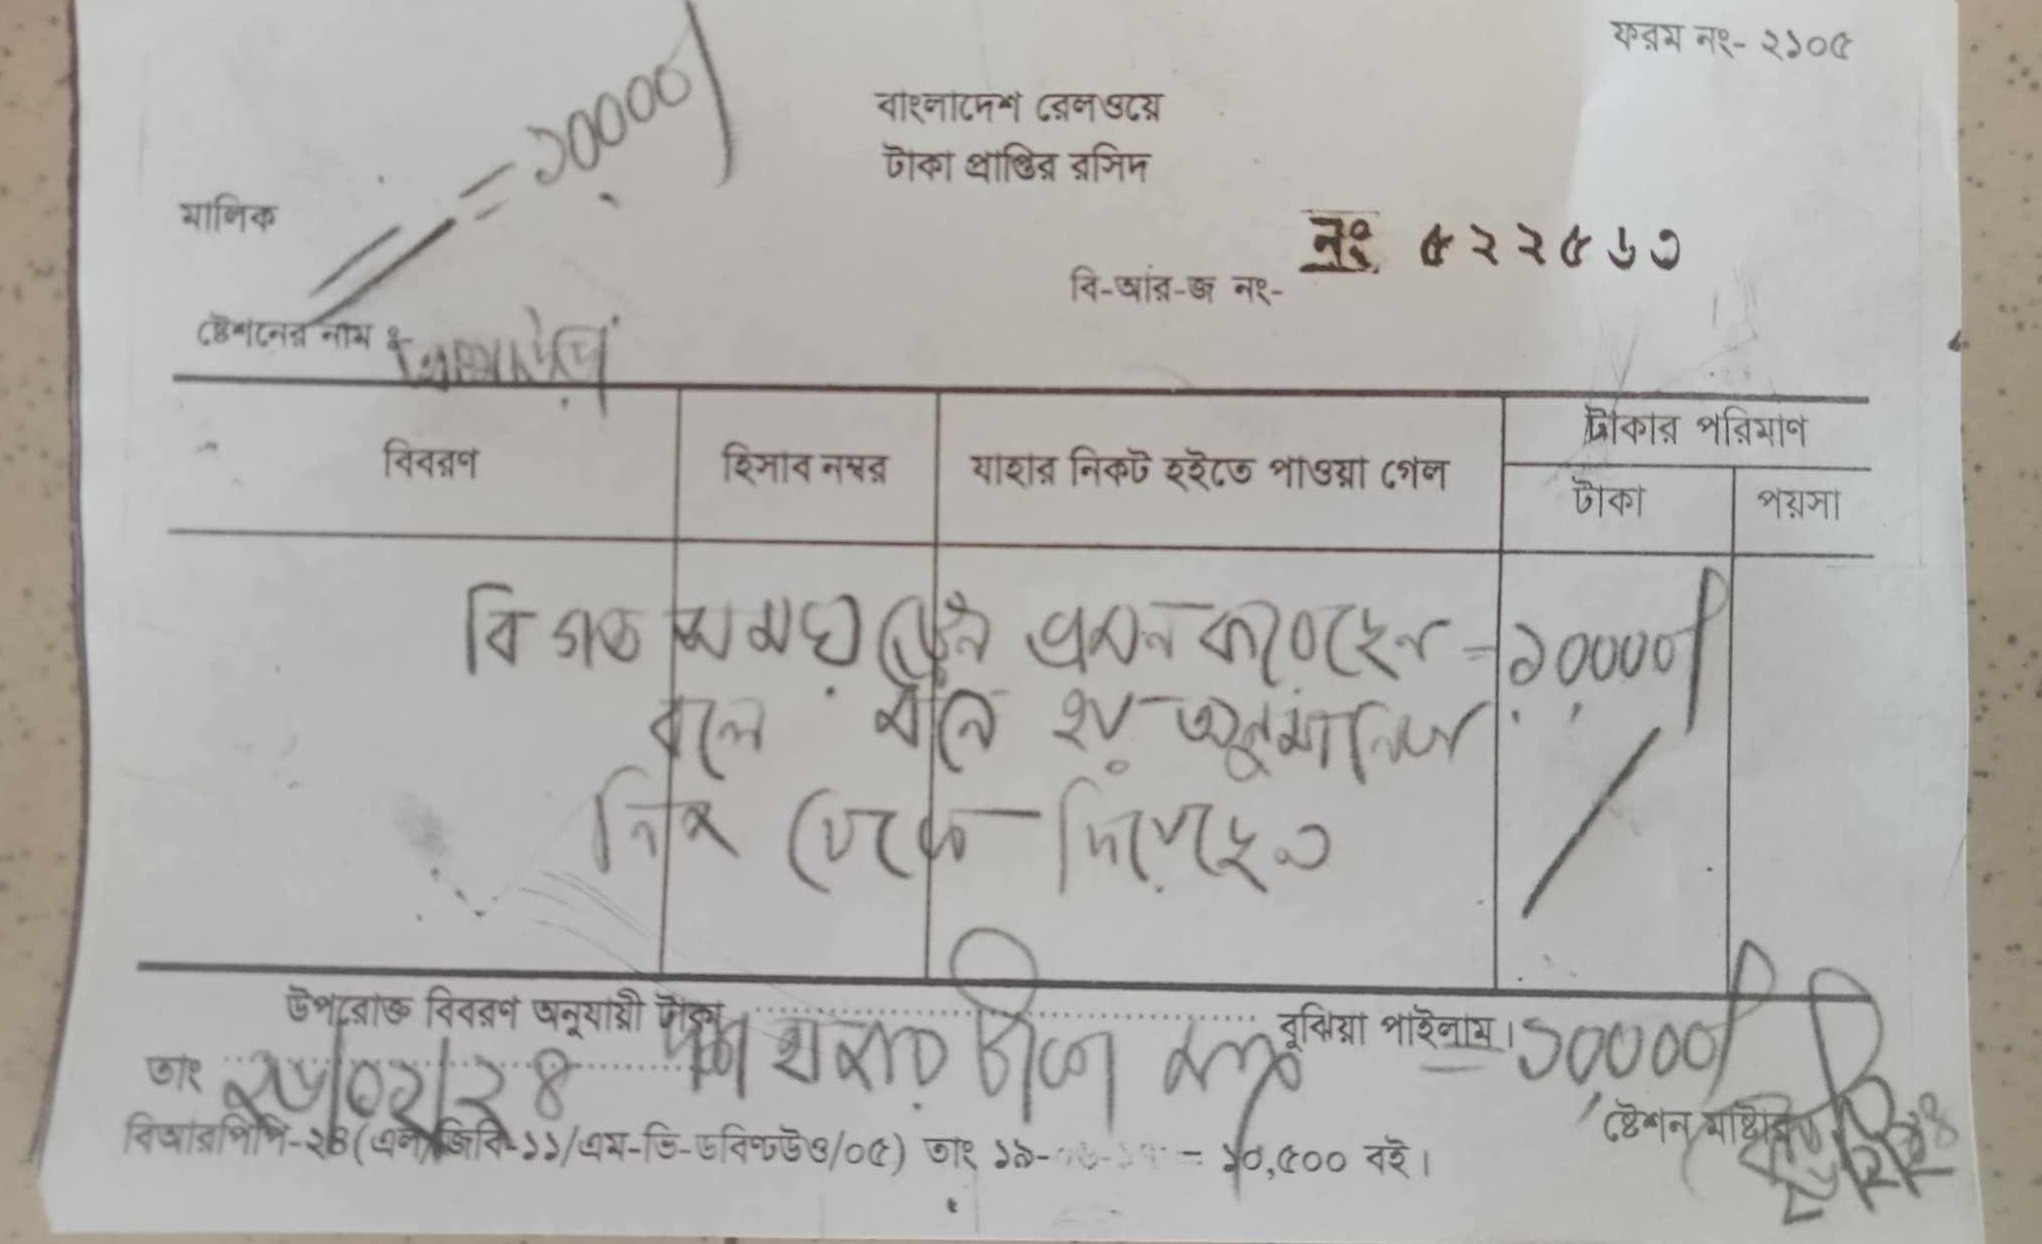 ফরম নং- ২১০৫
= ১০০০০/
বাংলাদেশ রেলওয়ে
টাকা প্রাপ্তির রসিদ
মালিক
নং ৫২২৫৬৩
বি-আর-জ নং-
ষ্টেশনের নাম ঃ-
টাকার পরিমাণ
বিবরণ হিসাব নম্বর যাহার নিকট হইতে পাওয়া গেল টাকা পয়সা
বিগত সময় ট্রেন ভ্রমন করেছেন = ১০০০০/
বলে মনে হয় অনুমানিক
নিজ থেকে দিয়েছেন
উপরোক্ত বিবরণ অনুযায়ী টাকা বুঝিয়া পাইলাম। = ১০০০০/
তাং ২৬/০২/২৪ দশ হাজার টাকা মাত্র
ষ্টেশন মাষ্টার
বিআরপিপি-২৪(এল)জিবি-১১/এম-ভি-ডবিণ্ডউও/০৫) তাং ১৯- = ১০,৫০০ বই।